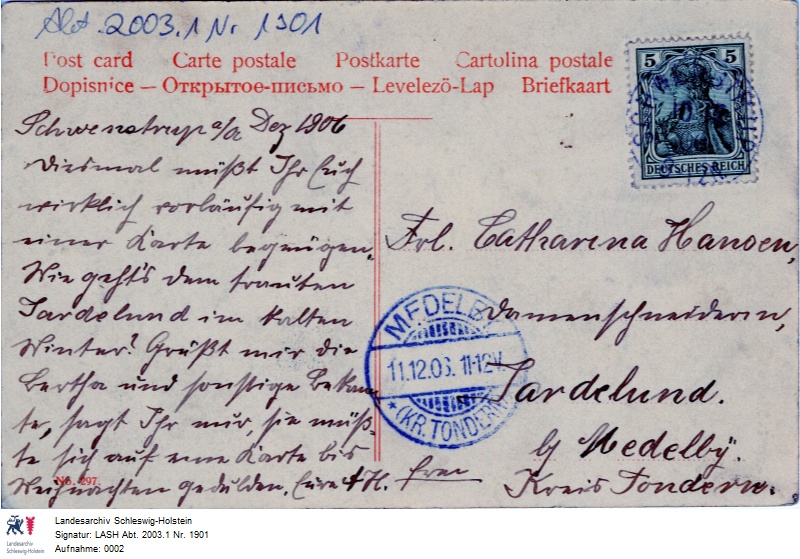 Abt. 2003.1 Nr 1901
Post card Carte postale Postkarte Cartolina postale
Dopisnice — Открытое-письмо — Levelezö-Lap Briefkaart
5 5
DEUTSCHES REICH
Schwenstrup a/a Dez 1906
Diesmal müßt Ihr Euch
wirklich vorläufig mit
einer Karte begnügen.
Wie geht's dem trauten
Jardelund im kalten
Winter? Grüßt mir die
Bertha und sonstige Bekann
te, sagt Ihr nur, sie müß-
te sich auf eine Karte bis
Weihnachten gedulden. Eure H.
No. 297.
Frl. Catharina Hansen,
Damenschneiderin,
Jardelund.
by Medelby.
Kreis Tondern.
MEDELBY
11.12.06. 11-12V.
* (KR. TONDERN)
Landesarchiv Schleswig-Holstein
Signatur: LASH Abt. 2003.1 Nr. 1901
Aufnahme: 0002
Landesarchiv
Schleswig-Holstein